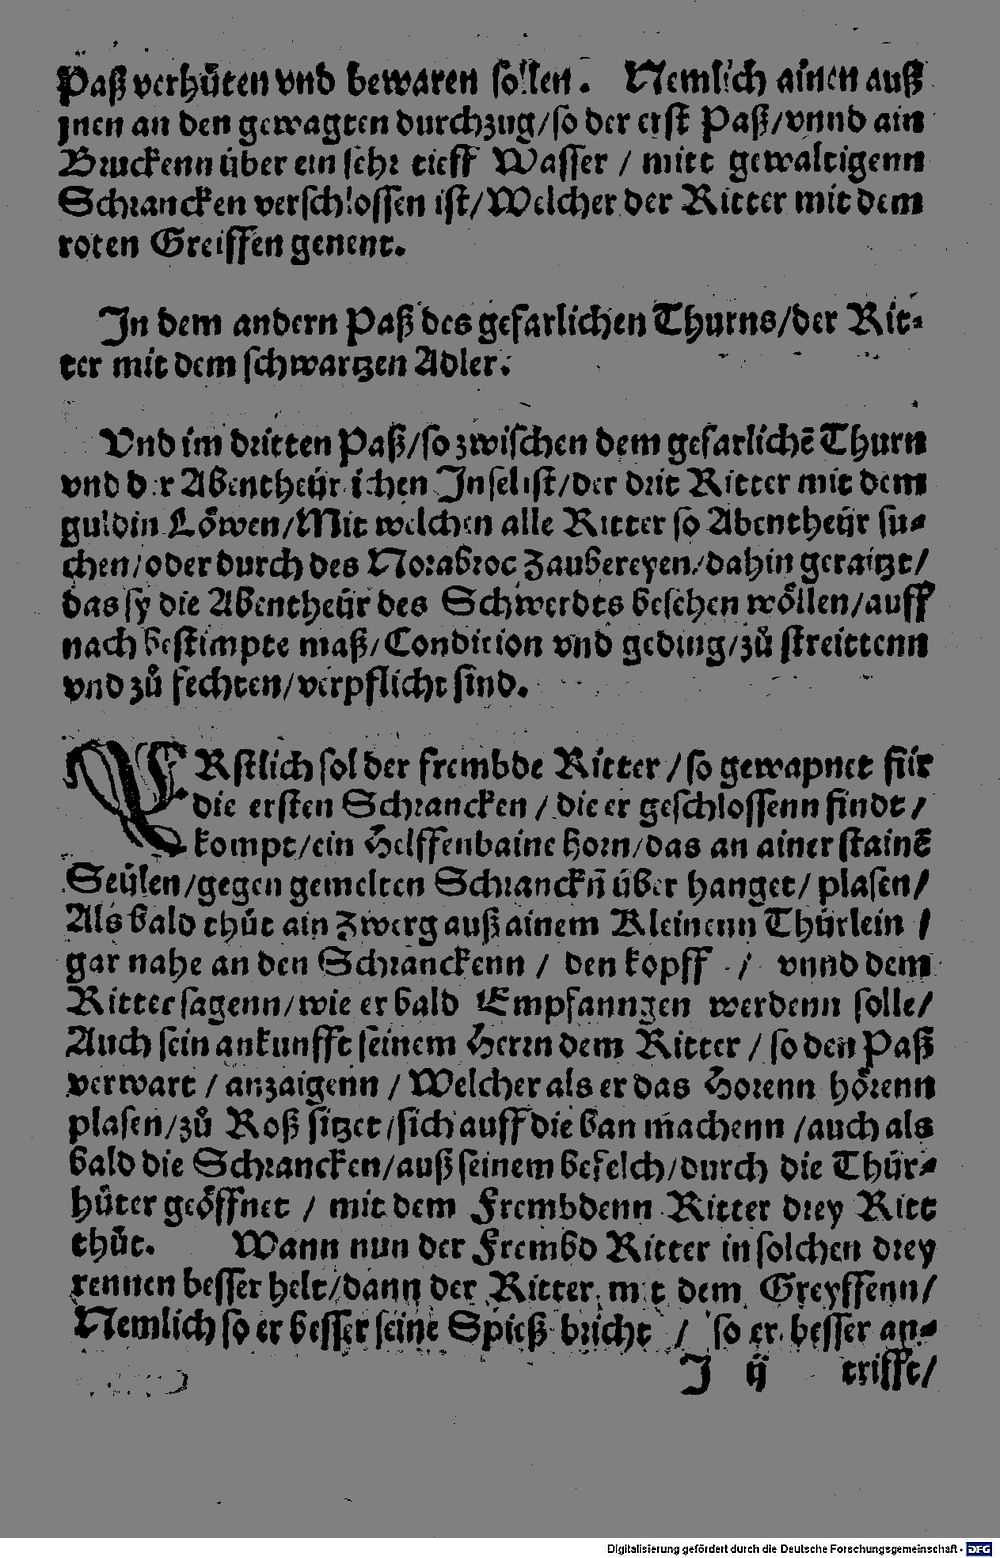 Paß verhüten vnd bewaren sollen. Nemlich ainen auß
jnen an den gewagten durchzug/so der erst Paß/vnnd ain
Bruckenn über ein sehr tieff Wasser / mitt gewaltigenn
Schrancken verschlossen ist/Welcher der Ritter mit dem
roten Greiffen genent.
In dem andern Paß des gefarlichen Thurns/der Rit⸗
ter mit dem schwartzen Adler.
Vnd im dritten Paß/so zwischen dem gefarlichē Thurn
vnd der Abentheürlichen Insel ist/der drit Ritter mit dem
guldin Löwen/Mit welchen alle Ritter so Abentheür su⸗
chen/oder durch des Norabroc Zaubereyen/dahin geraitzt/
das sy die Abentheür des Schwerdts besehen wöllen/auff
nach bestimpte maß/Condition vnd geding/zů streittenn
vnd zů fechten/verpflicht sind.
ERstlich sol der frembde Ritter /so gewapnet für
die ersten Schrancken / die er geschlossenn findt /
kompt/ein Helffenbaine horn/das an ainer stainē
Seülen/gegen gemelten Schranckñ über hanget/ plasen/
Als bald thůt ain Zwerg auß ainem Kleinenn Thürlein /
gar nahe an den Schranckenn / den kopff / vnnd dem
Ritter sagenn/wie er bald Empfanngen werdenn solle/
Auch sein ankunfft seinem Herrn dem Ritter / so den Paß
verwart / anzaigenn / Welcher als er das Horenn hörenn
plasen/zů Roß sitzet/sich auff die ban machenn /auch als
bald die Schrancken/auß seinem befelch/durch die Thür⸗
hüter geöffnet / mit dem Frembdenn Ritter drey Ritt
thůt. Wann nun der Frembd Ritter in solchen drey
rennen besser helt/dann der Ritter mit dem Greyffenn/
Nemlich so er besser seine Spieß bricht / so er besser an⸗
J ij trifft/
Digitalisierung gefördert durch die Deutsche Forschungsgemeinschaft - DFG